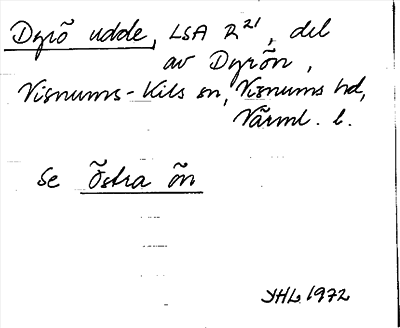 Dyrö udde, LSA R²¹, del
av Dyrön,
Visnums-Kils sn, Visnums hd,
Värml. l.
Se Östra ön
YHL 1972